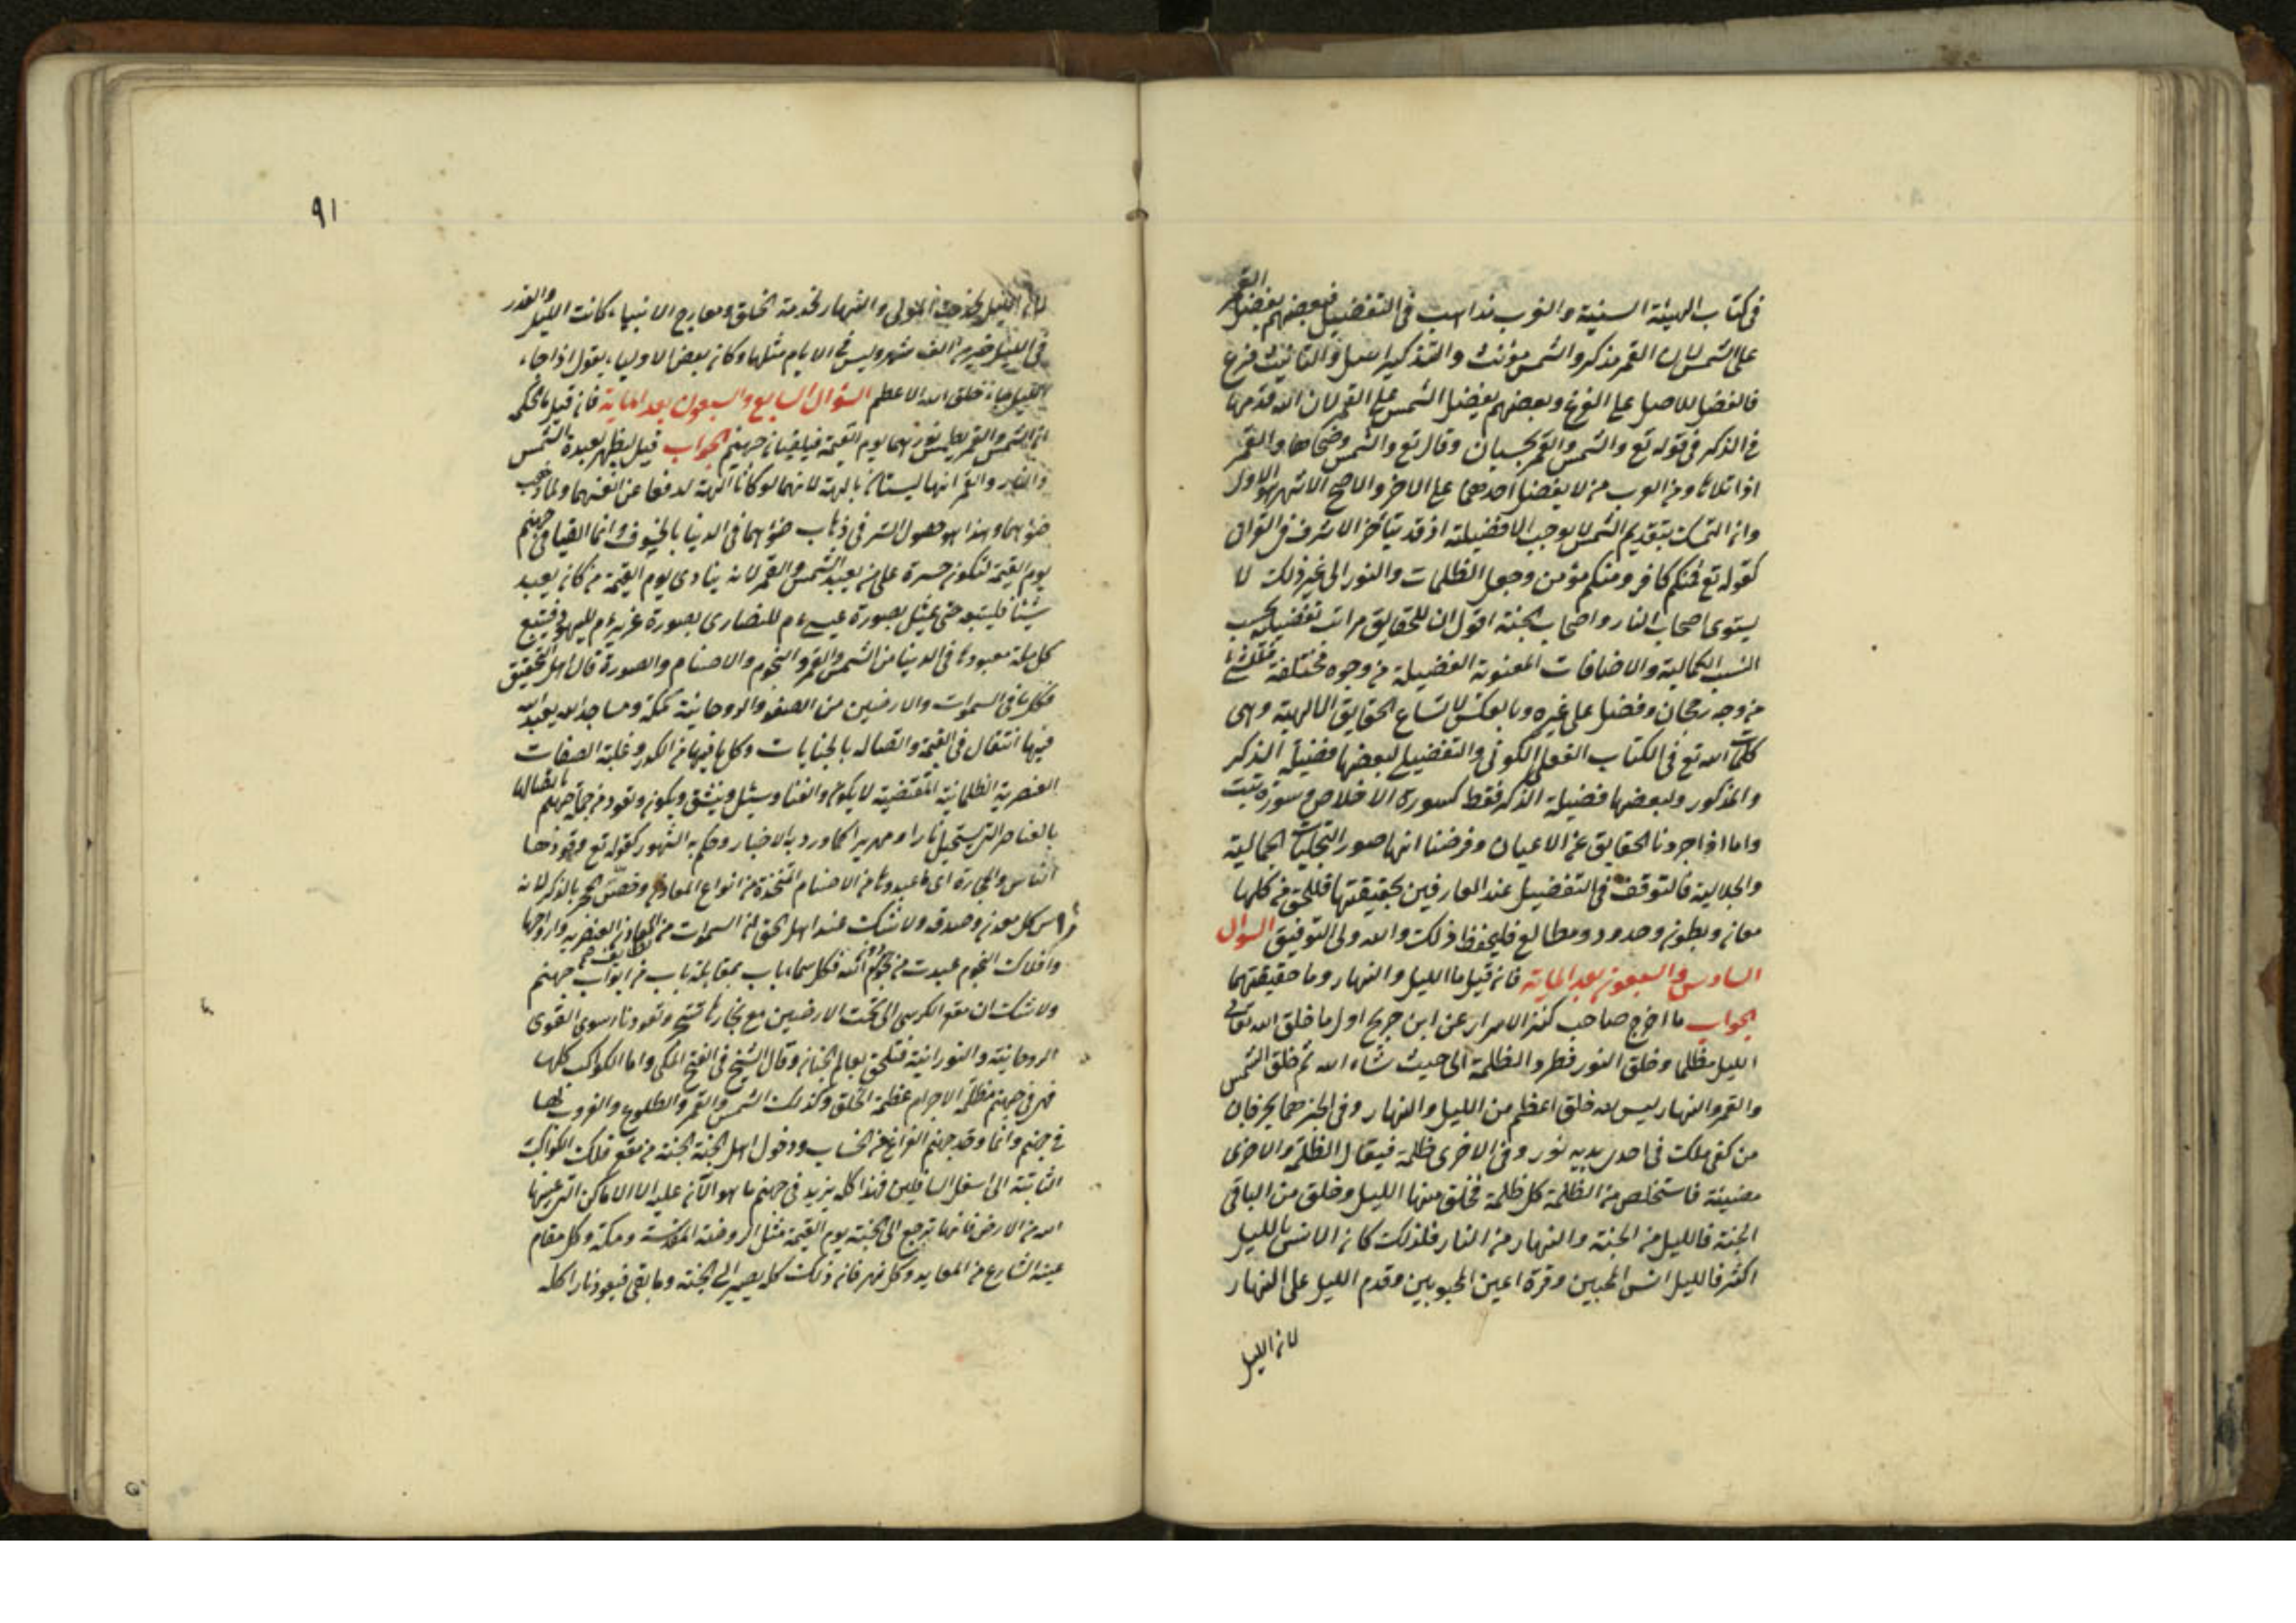 في كتاب الهيئة السنية والعرب مذاهب في التفضيل فبعضهم يفضل القمر
على الشمس لان القمر مذكر والشمس مؤنث والتذكير اصل والتانيث فرع
فالفضل للاصل على الفرع وبعضهم يفضل الشمس على القمر لان الله قدمها
في الذكر في قوله تع والشمس والقمر بحسبان وقال تع والشمس وضحاها والقمر
اذا تلاها ومن العرب من لا يفضل احدهما على الاخر والاصح الاشهر هو الاول
وان التمسك بتقديم الشمس لا يوجب الافضيلة اذ قد يتأخر الاشرف في القرآن
كقوله تع فمنكم كافر ومنكم مؤمن وجعل الظلمات والنور الى غير ذلك لا
يستوى اصحاب النار واصحاب الجنة اقول ان للحقايق مراتب تفضيلية بحسب
النسب الكمالية والاضافات المعنوية الفضيلة من وجوه مختلفة فلكل شئ
من وجه رجحان وفضل على غيره وبالعكس لاتساع الحقايق الالهية وهى
كلمات الله تع في الكتاب الفعلى الكونى والتفضيل لبعضها فضيلة الذكر
والمذكور ولبعضها فضيلة الذكر فقط كسورة الاخلاص وسورة تبت
واما اذا جردنا الحقايق عن الاعيان وفرضنا انها صور التجليات الجمالية
والجلالية فالتوقف في التفضيل عند العارفين بحقيقتها فللحق في كلها
معان وبطون وحدود ومطالع فليحفظ ذلك والله ولى التوفيق السؤال
السادس والسبعون بعد الماية فان قيل ما الليل والنهار وما حقيقتهما
الجواب ما اخرج صاحب كنز الاسرار عن ابن جريج اول ما خلق الله تعالى
الليل مظلما وخلق النور فطرد الظلمة الى حيث شاء الله ثم خلق الشمس
والقمر والنهار ليس لله خلق اعظم من الليل والنهار وفي الخبر هما يجريان
من كفى ملك في احدى يديه نور وفي الاخرى ظلمة فيقال الظلمة والاخرى
مضيئة فاستخلص من الظلمة كل ظلمة فخلق منها الليل وخلق من الباقى
الجنة فالليل من الجنة والنهار من النار فلذلك كان الانس بالليل
اكثر فالليل انس المحبين وقرة اعين المحبوبين وقدم الليل على النهار
لان الليل
٩١
لان الليل لخدمة المولى والنهار لخدمة الخلق ومعارج الانبياء كانت الليل والقدر
في الليل خير من الف شهر وليس في الايام مثلها وكان بعض الاولياء يقول اذا جاء
الليل جاء خلق الله الاعظم السؤال السابع والسبعون بعد الماية فان قيل ما الحكمة
ان الشمس والقمر يطمس نورهما يوم القيمة فيلقيان في جهنم الجواب قيل ليظهر لعبدة الشمس
والنار والقمر انها ليستا بالهة لانهما لو كانا الهة لدفعا عن انفسهما ولما ذهب
ضوءهما وهذا هو حصول السر في ذهاب ضوءهما في الدنيا بالخسوف وانما القيا في جهنم
يوم القيمة لتكون حسرة على من يعبد الشمس والقمر لانه ينادى يوم القيمة من كان يعبد
شيئا فليتبعه حتى يمثل بصورة عيسى ء م للنصارى بصورة عزير ء م لليهود فيتبع
كل ملة معبودها في الدنيا من الشمس والقمر والنجوم والاصنام والصورة قال اهل التحقيق
فكل ما في السموات والارضين من الصفو والروحانية كمكة ومساجد الله يعبد الله
فيها انتقال في القيمة واتصاله بالجنايات وكل ما فيها من الكدر وغلبة الصفات
العنصرية الظلمانية المقتضية لا يكون والفنا
بالعناصر التى تستحيل نارا وزمهريرا كما ورد به الاخبار وحكم به الشهور كقوله تع وقودها
الناس والحجارة اى ما عبدوها من الاصنام المتخذة من انواع المعادن وخصّ الحجر بالذكر لانه
راس كل معدن وصدقه ولا شك عند اهل الحق ان السموات من المعادن العنصرية وارواحها
وافلاك النجوم عبدت من فكل سماء باب بمقابلة باب من ابواب جهنم
ولا شك ان مقعر الكرسى الى تحت الارضين مع بحارها وتعود نارا سوى القوى
الروحانية والنورانية فتلحق بعالم الجنان وقال الشيخ في الفتح المكى واما الكواكب كلها
فهى في جهنم مظلمة الاجرام عظيمة الخلق وكذلك الشمس والقمر والطلوع والغروب لهما
في جهنم وانما وقد جهنم الفراغ من الحساب ودخول اهل الجنة الجنة من مقعر فلك الكواكب
الثابتة الى اسفل السافلين فهذا كله يزيد في جهنم ما هو الآن عليه الا الاماكن التى عينها
الله من الارض فانها ترجع الى الجنة يوم القيمة مثل الروضة المقدسة ومكة وكل مقام
عينه الشارع من المعابد وكل نهر فان ذلك كله يصير الى الجنة وما بقى فيعود نارا كله